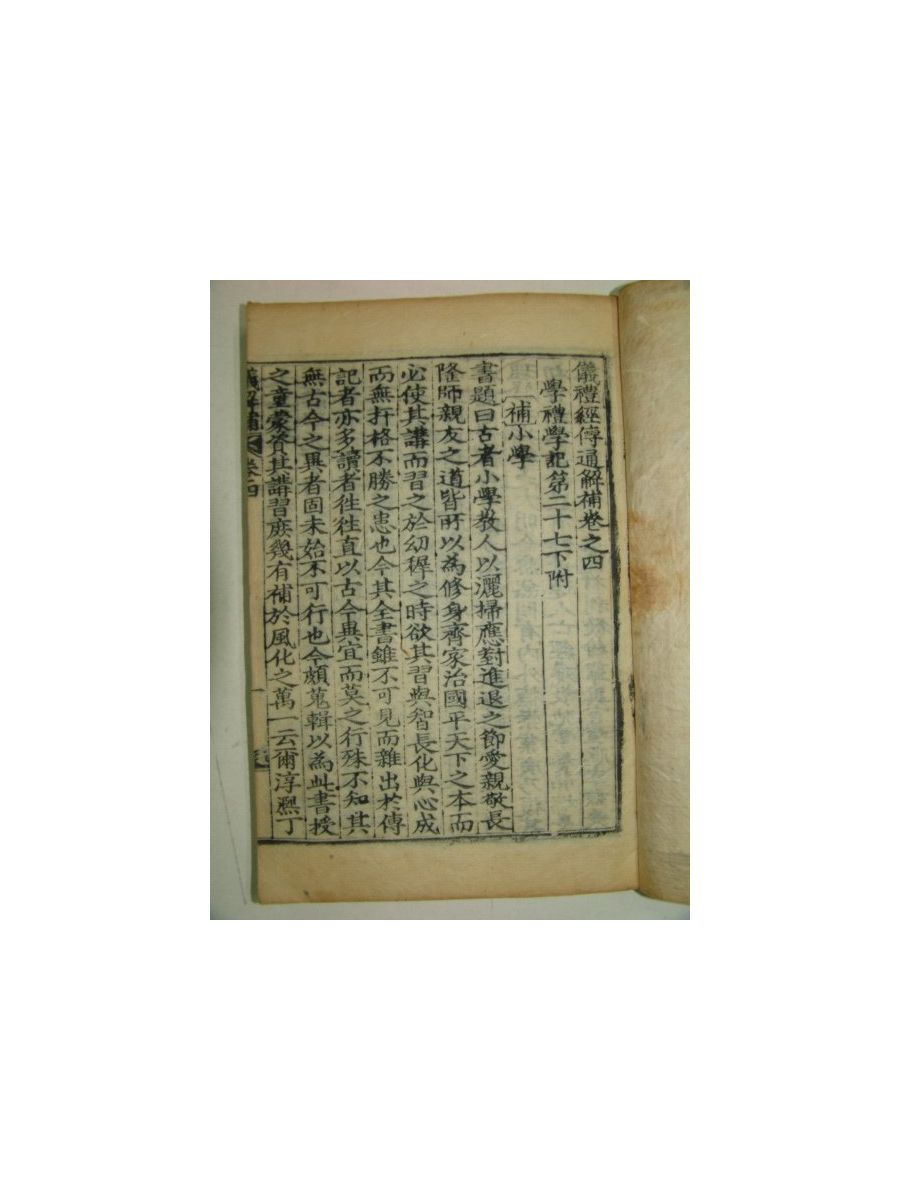 儀禮經傳通解補卷之四
學禮學記第二十七下附
補小學
書題曰古者小學教人以灑掃應對進退之節愛親敬長
隆師親友之道皆所以為修身齊家治國平天下之本而
必使其講而習之於幼穉之時欲其習與智長化與心成
而無扞格不勝之患也今其全書雖不可見而雜出於傳
記者亦多讀者徃徃直以古今異宜而莫之行殊不知其
無古今之異者固未始不可行也今頗蒐輯以為此書授
之童蒙資其講習庶幾有補於風化之萬一云爾淳熙丁
卷四